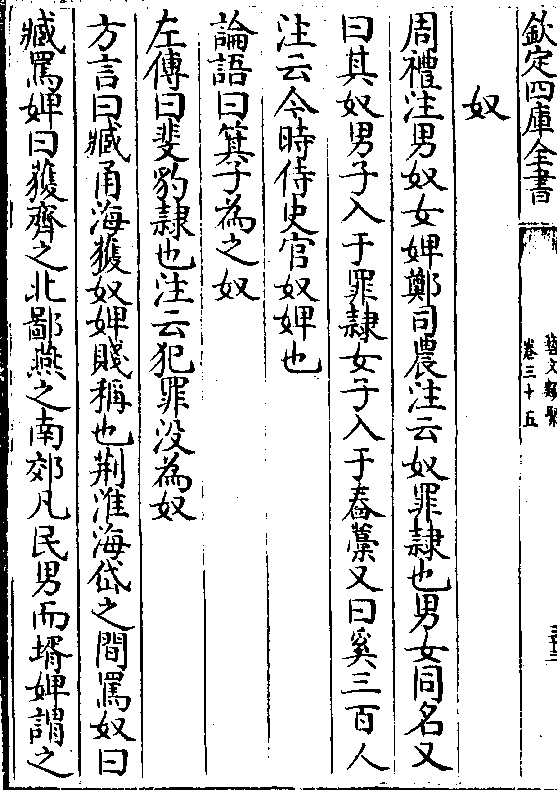 欽定四庫全書
藝文類聚
卷三十五
奴
周禮注男奴女婢鄭司農注云奴罪隷也男女同名又
曰其奴男子入于罪隷女子入于舂藳又曰奚三百人
注云今時侍史官奴婢也
論語曰箕子為之奴
左傳曰斐豹隷也注云犯罪没為奴
方言曰臧甬海獲奴婢賤稱也荆淮海岱之間罵奴曰
臧罵婢曰獲齊之北鄙燕之南郊凡民男而壻婢謂之